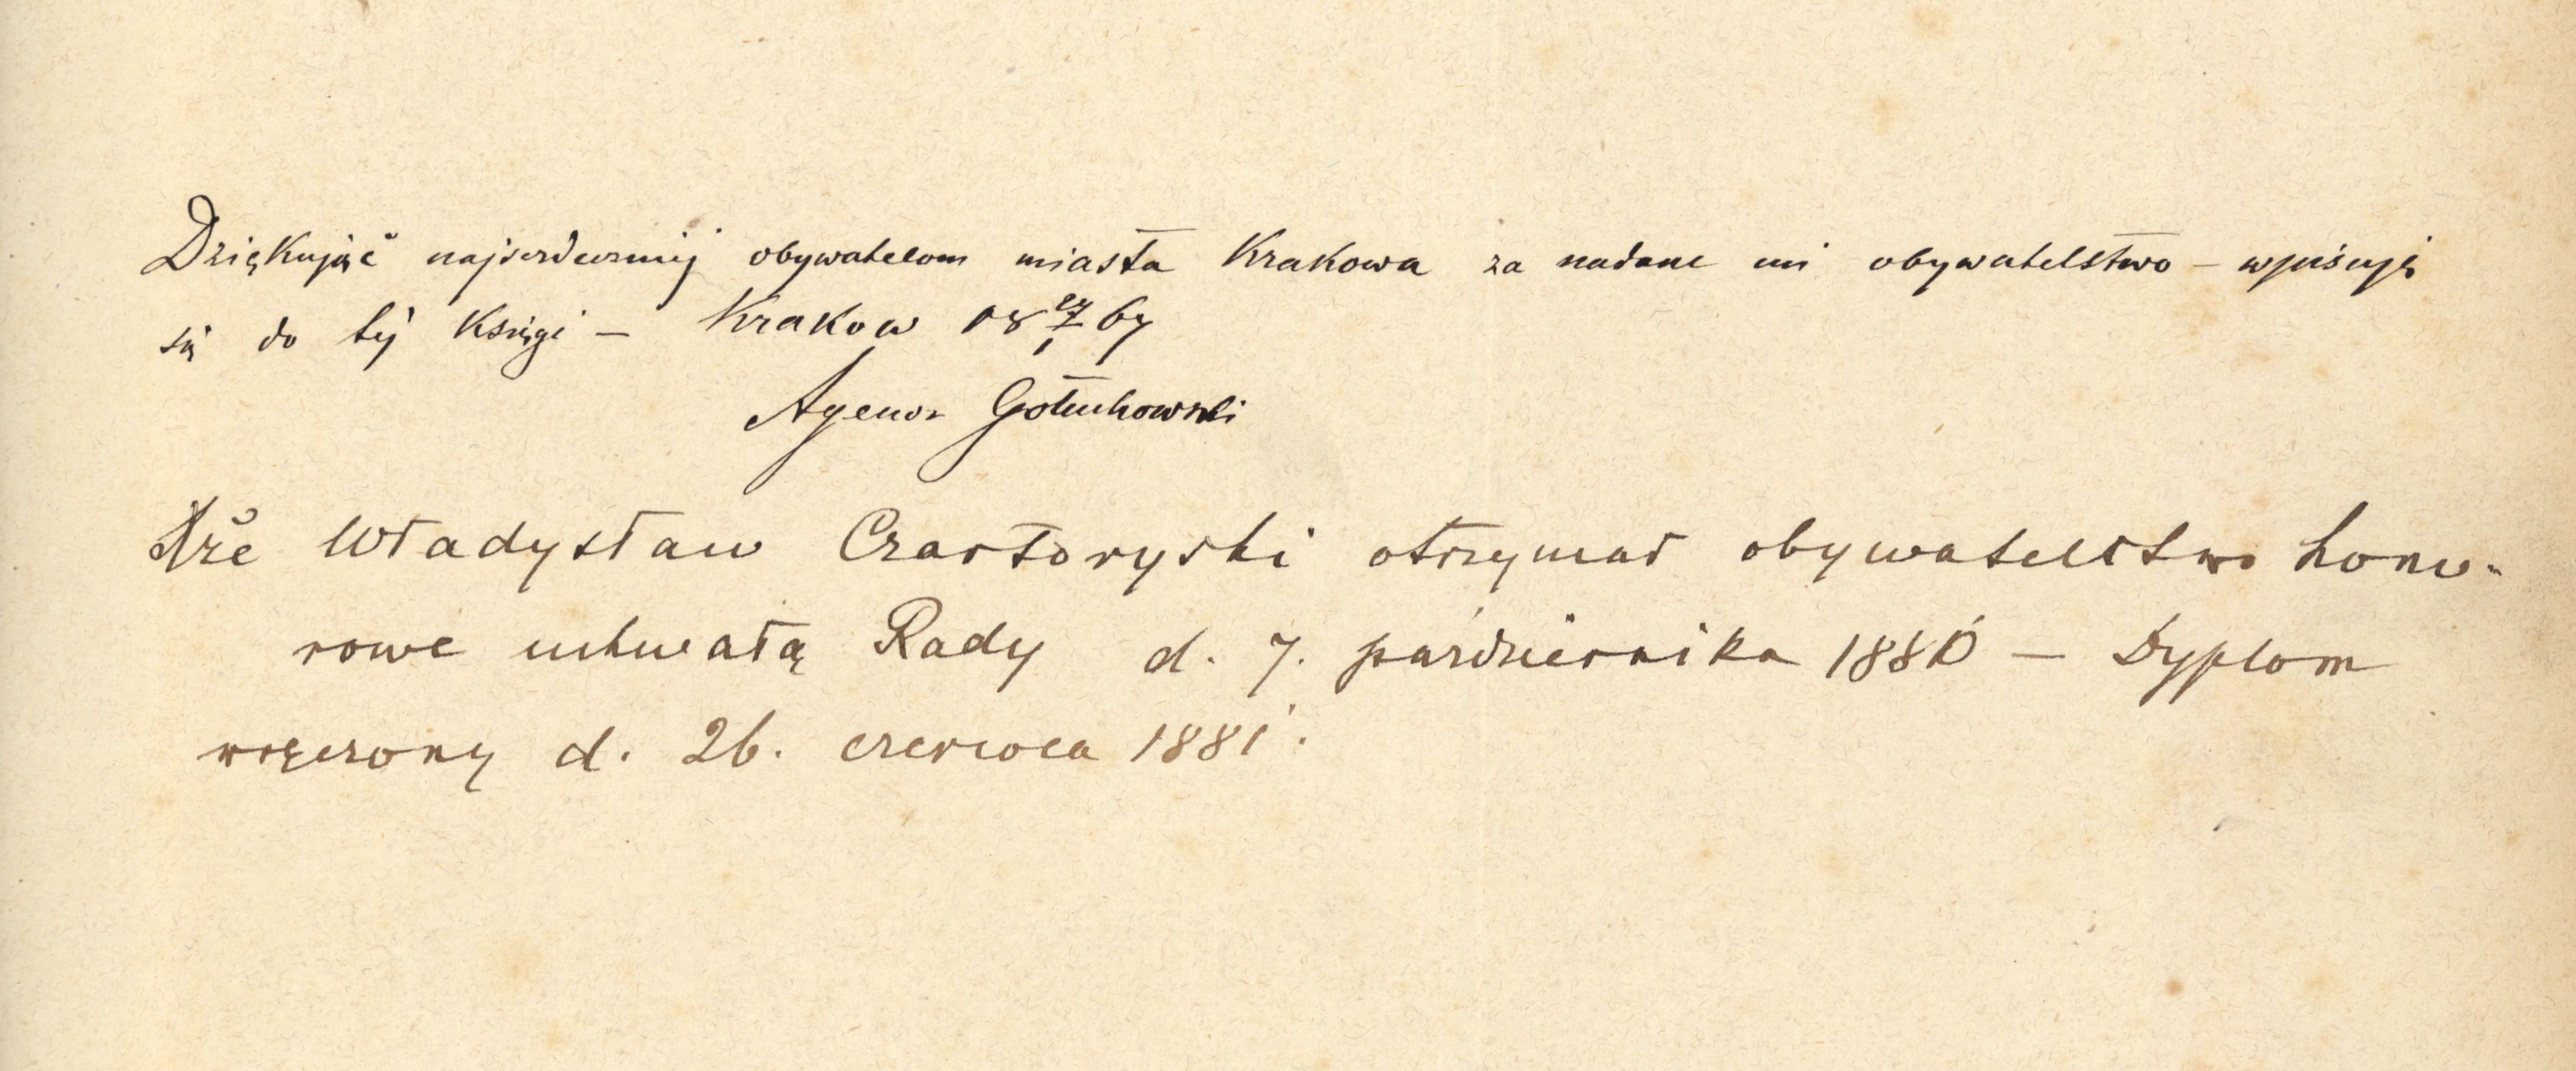 Dziękując najserdeczniej obywatelom miasta Krakowa za nadane mi obywatelstwo – wpisuję
się do tej Księgi – Krakow 18 67
Agenor Gołuchowski
Xże Władysław Czartoryski otrzymał obywatelstwo hono-
rowe uchwałą Rady d. 7. października 1880 – Dyplom
wręczony d. 26. czerwca 1881.